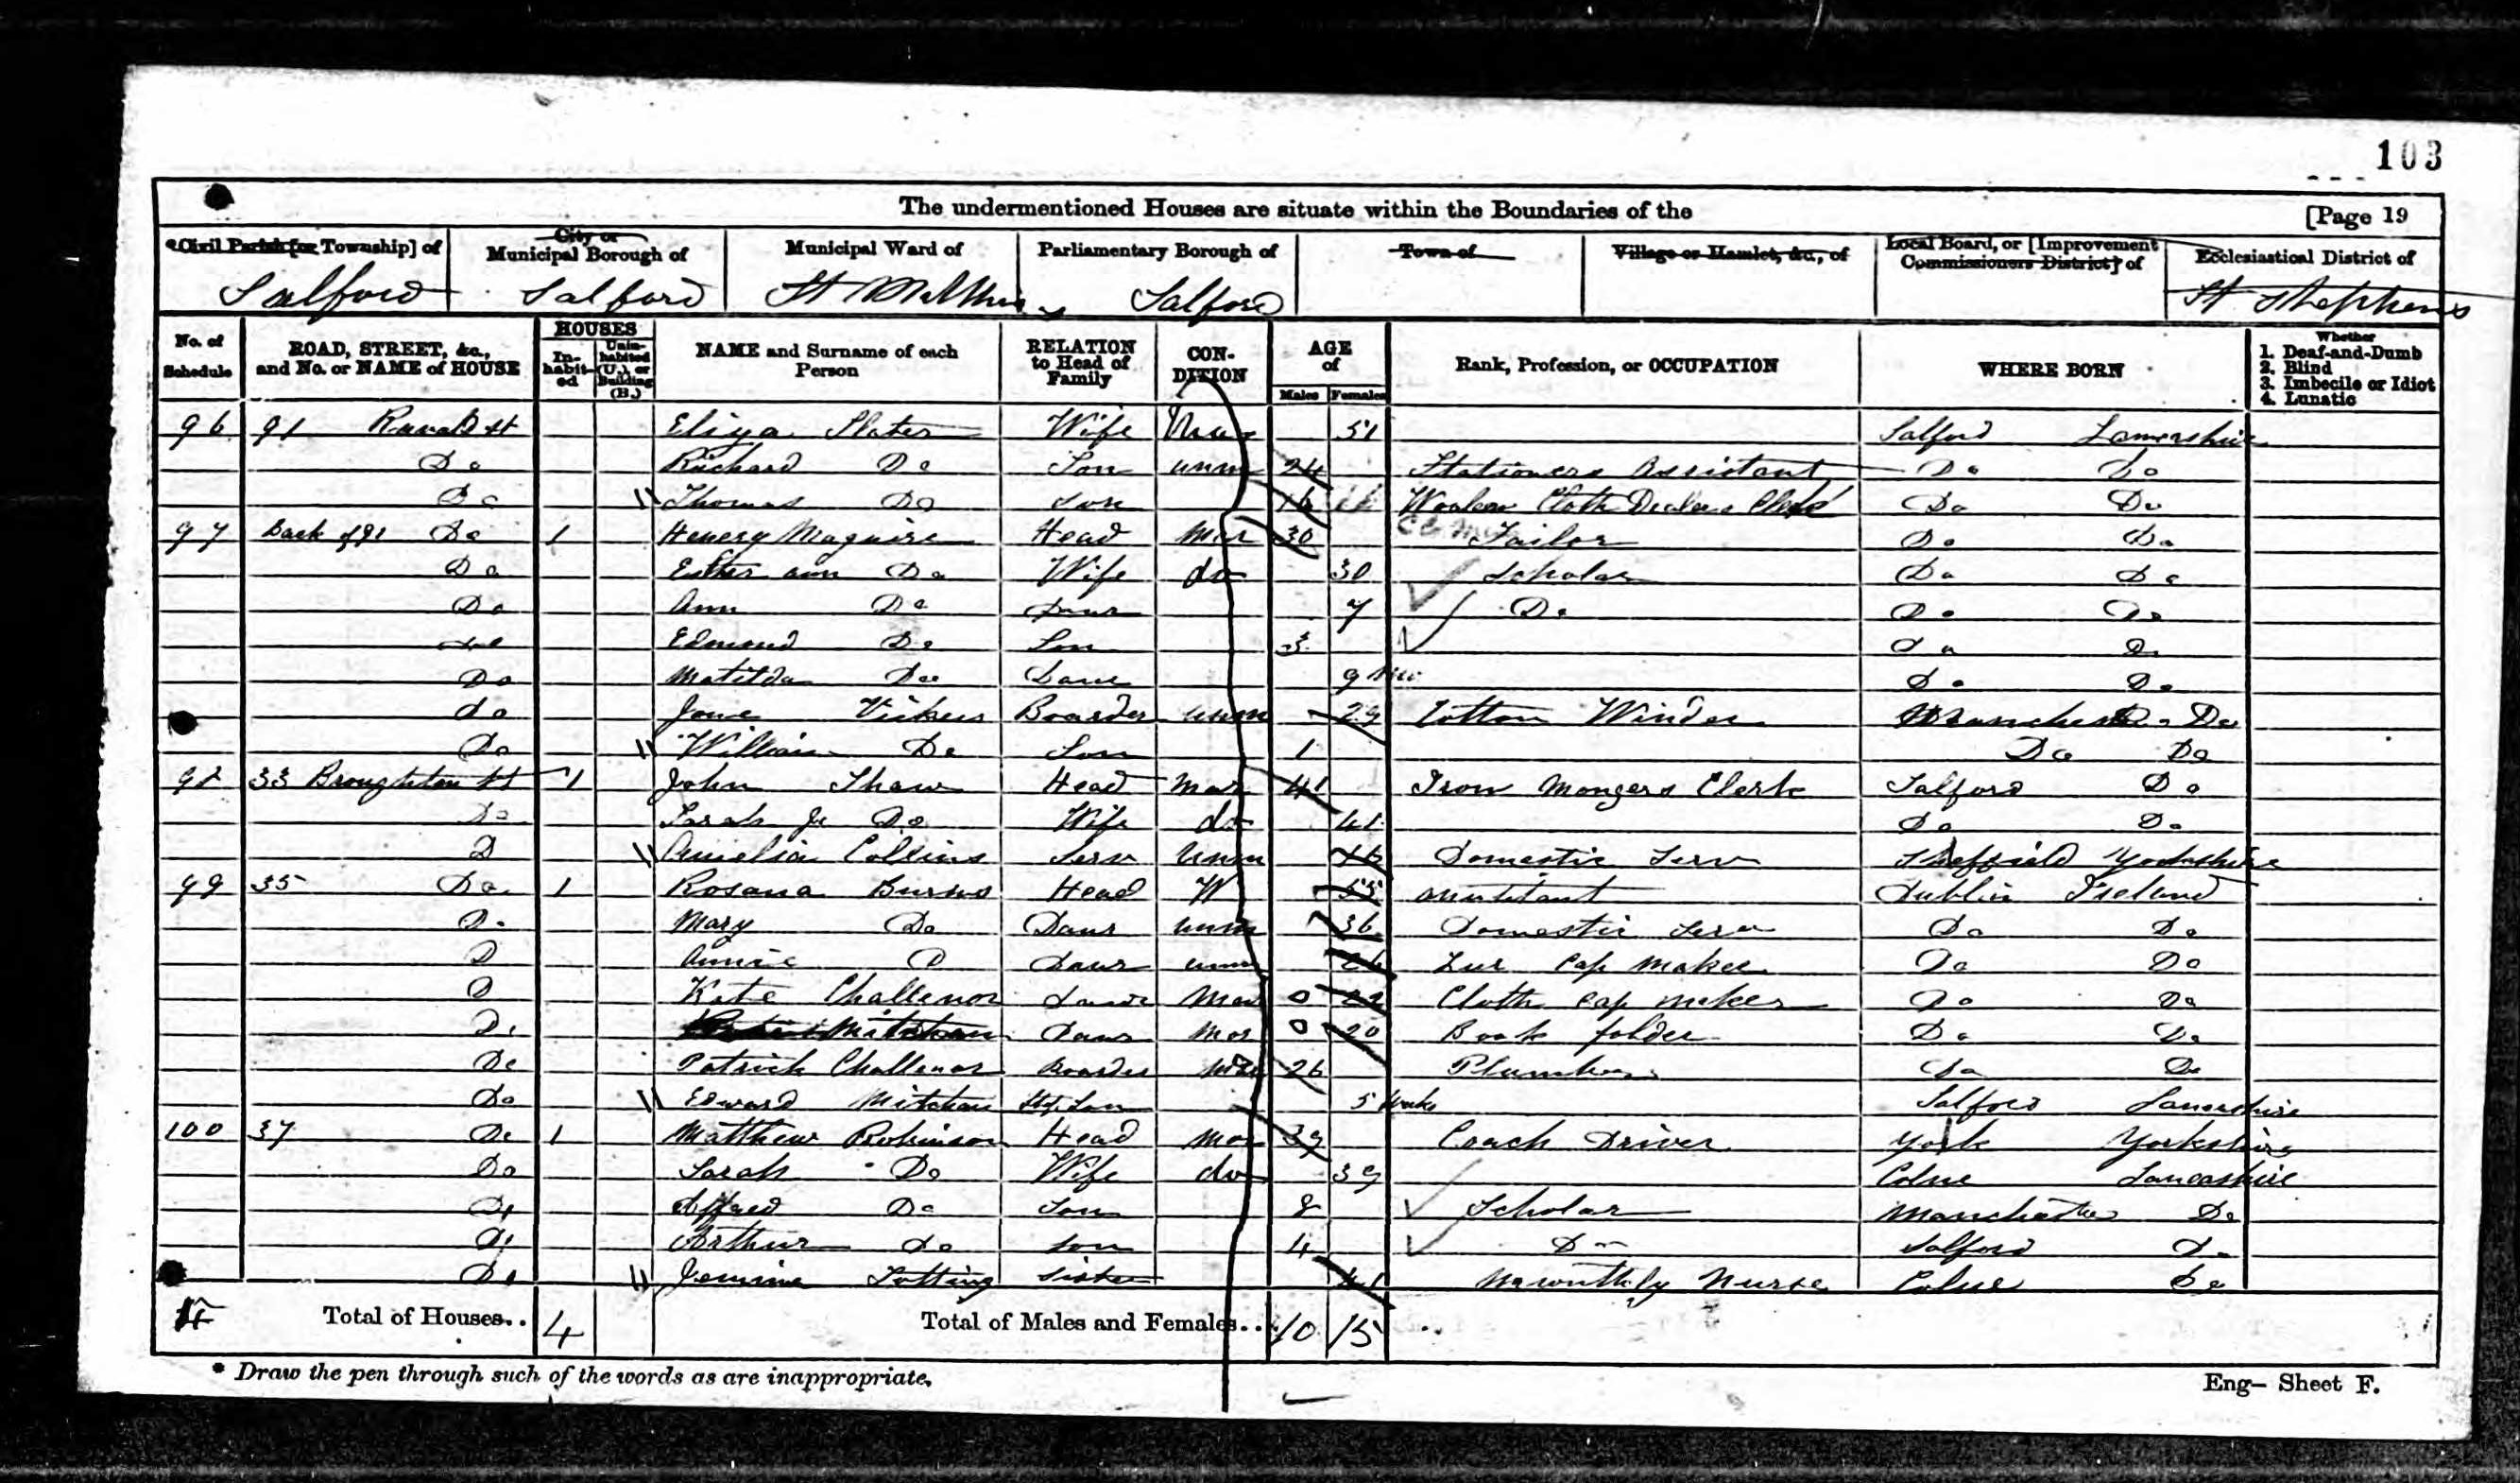 103
The undermentioned Houses are situate within the Boundaries of the [Page 19
*Civil Parish [or Township] of City or Municipal Borough of Municipal Ward of Parliamentary Borough of Town of Village or Hamlet, &c., of Local Board, or [Improvement Commissioners District] of Ecclesiastical District of
Salford Salford St Salford St Stephens
No. of Schedule ROAD, STREET, &c., and No. or NAME of HOUSE HOUSES Inhabited Uninhabited (U.), or Building (B.) NAME and Surname of each Person RELATION to Head of Family CONDITION AGE of Males Females Rank, Profession, or OCCUPATION WHERE BORN Whether 1. Deaf-and-Dumb 2. Blind 3. Imbecile or Idiot 4. Lunatic
96 91 St Eliza Slater Wife Mar 51 Salford
Do Richard Do Son unm 24 Stationers Assistant Do Do
Do Thomas Do Son 16 Woolen Cloth Dealers Clerk Do Do
97 Back of 91 Do 1 Henery Maguire Head Mar 30 Tailor Do Do
Do Esther ann Do Wife do 30 Scholar Do Do
Do Ann Do Daur 7 Do Do Do
Edmond Do Son 3 Do Do
Do Matilda Do Daur 9 Mo Do Do
do Jane Vickers Boarder unm 29 Cotton Winder Manchester Do
Do William Do Son 1 Do Do
98 33 Broughton St 1 John Shaw Head Mar 41 Iron Mongers Clerk Salford Do
Do Sarah Do Wife do 41 Do Do
D Amelia Collins Serv Unm 16 Domestic Serv Sheffield Yorkshire
99 35 Do 1 Rosana Burns Head W 55 Dublin Ireland
Do Mary Do Daur unm 36 Domestic Serv Do Do
D Annie D Daur unm 26 Fur Cap Maker Do Do
D Kate Challenor Daur Mar 0 22 Cloth Cap Maker Do Do
Do Daur Mar 0 20 Book folder Do Do
Do Patrick Challenor Boarder Mar 26 Plumber Do Do
Do Edward Son 5 Weeks Salford
100 37 Do 1 Matthew Robinson Head Mar 39 Coach Driver York Yorkshire
Do Sarah Do Wife do 39 Colne Lancashire
Do Alfred Do Son 8 Scholar Manchester Do
Do Arthur Do Son 4 Do Salford Do
Do Sister 41 Monthly Nurse Colne Do
4 Total of Houses.. 4 Total of Males and Females.. 10 15
* Draw the pen through such of the words as are inappropriate. Eng- Sheet F.